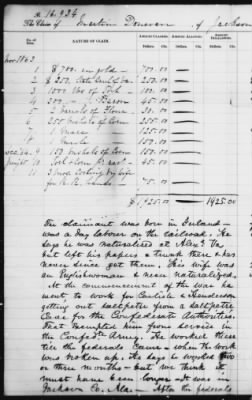 No. 16.934
The Claim of Burton Donovan of Jackson
NATURE OF CLAIM.
AMOUNT CLAIMED.
AMOUNT ALLOWED.
AMOUNT DISALLOWED.
Dolls. Cts. Dolls. Cts. Dolls. Cts.
Nov 1863
1 $700. in gold 700.00
2 $250. State 250.00
3 1000 lbs of Pork 100.00
4 300 " Bacon 45.00
5 30.00
6 250 bushels of Corn 250.00
7 1 Mare 125.00
8 1 150.00
9 150 bushels of Corn 150.00
10 45.00
11 3 cooking by wife
for R.R. hands 75.00
$1925.00 1925.00
The claimant was born in Ireland
was a day laborer on the railroad. He
says he was naturalized at Alex. Va
but left his papers in a trunk there & has
never since got them. His wife was
an Englishwoman & never naturalized.
At the commencement of the war he
went to work for Carlile & Henderson
getting out saltpeter from a saltpeter
Cave for the Confederate Authorities.
That exempted him from service in
the Confed. Army. He worked there
till the federals came when the work
was broken up. He says he worked two
or three months but we think it
must have been longer. It was in
Jackson Co. Ala. After the federals